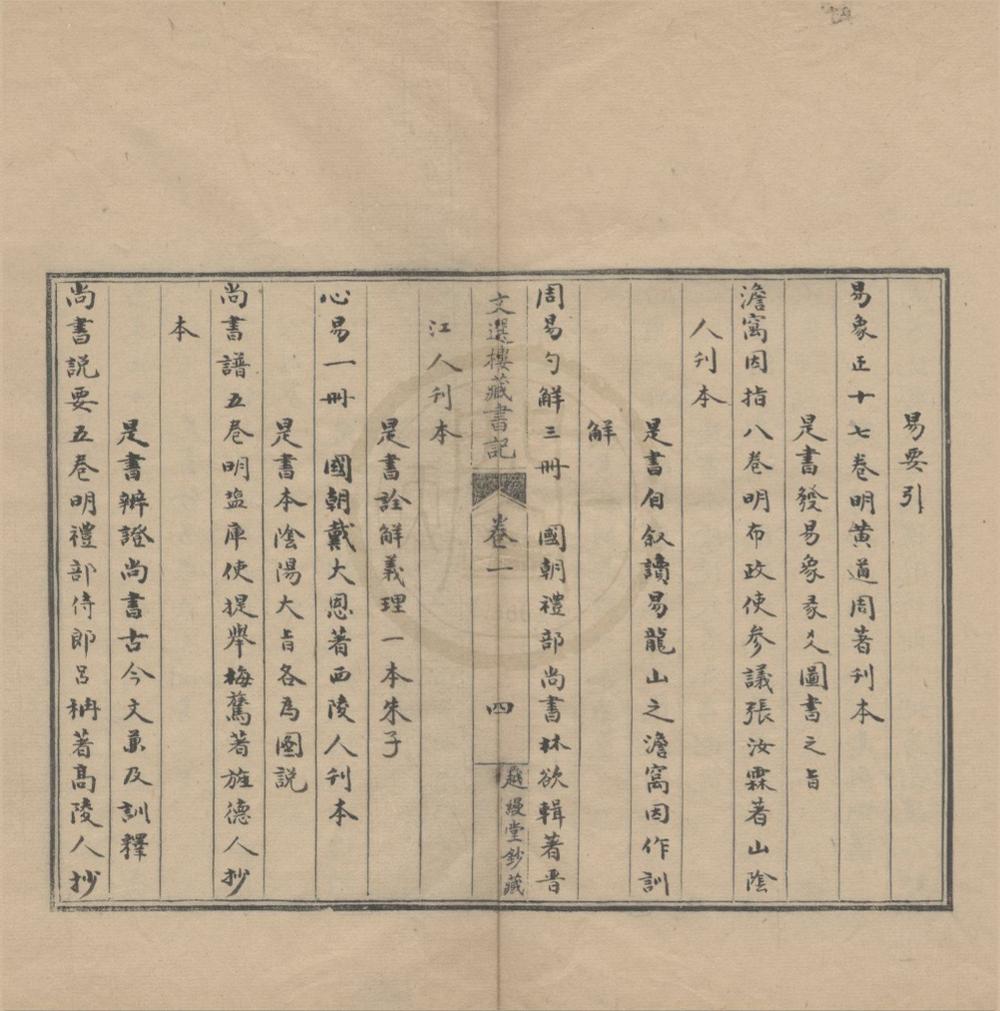 易要引
易象正十七卷明黄道周著刊本
是書發易象彖爻圖書之旨
澹寓因指八卷明布政使參議張汝霖著山陰
人刊本
是書自叙讀易龍山之澹窩因作訓
解
周易勺解三冊　國朝禮部尚書林欲輯著晋
文選樓藏書記　卷一　四　越縵堂鈔藏
江人刊本
是書詮解義理一本朱子
心易一冊　國朝戴大恩著西陵人刊本
是書本陰陽大旨各為圖説
尚書譜五卷明塩庫使提舉梅鷟著旌德人抄
本
是書辨證尚書古今文兼及訓釋
尚書説要五卷明禮部侍郎呂柟著髙陵人抄